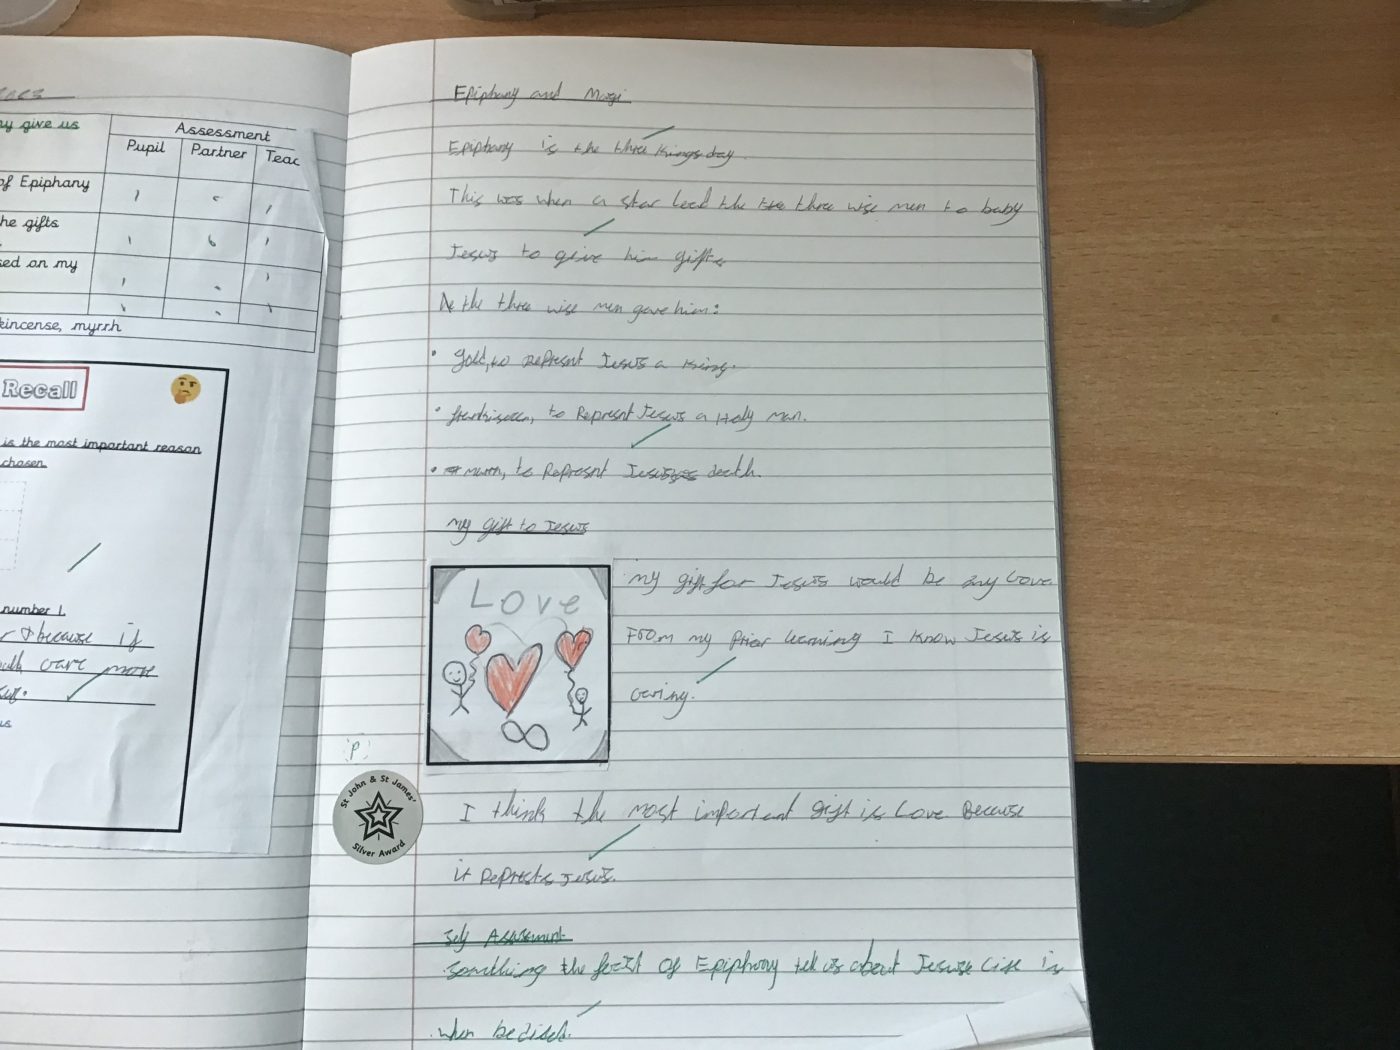 ny give us
Assessment
Pupil
Partner
Teac
of Epiphany
he gifts
sed on my
kincense, myrrh
Recall
is the most important reason
chosen
number 1.
because if
care more
us
Epiphany and Magi
Epiphany is the three Kings day.
This was when a star lead the three wise men to baby
Jesus to geive him gifts
the three wise men gave him:
• gold, to represnt Jesus a King.
• to Represnt Jesus a Holy man.
• to Represnt death.
my gift to Jesus
Love
my gift for Jesus would be my Love
From my Prior learning I know Jesus is
caring.
P
St John & St James'
Silver Award
I think the most important gift is Love Because
it Jesus.
Self Assessment
something the of Epiphany tell us about life is
when